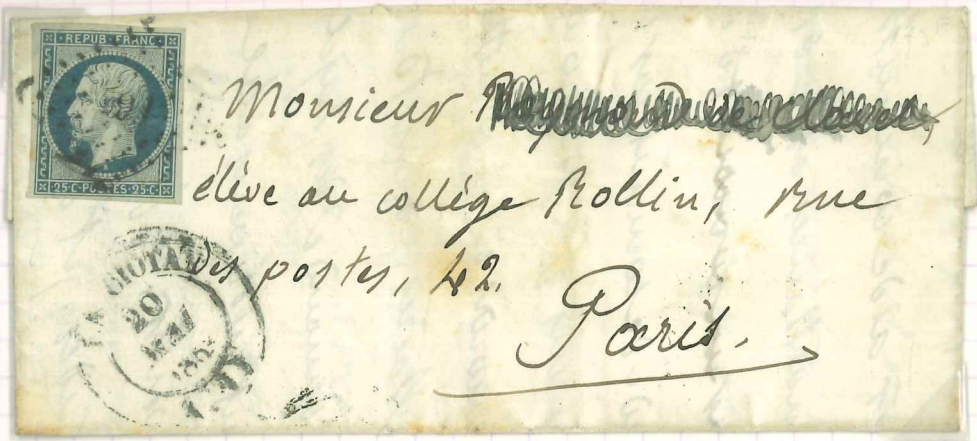 REPUB. FRANC.
25·C·POSTES·25·C·
Monsieur
élève au collège Rollin, Rue
des postes, 42.
Paris.
LA CIOTAT
20
MAI